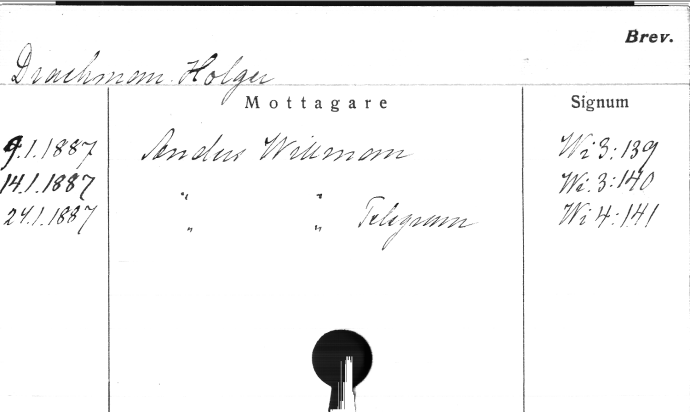 Brev.
Drachman Holger
Mottagare Signum
9.1.1887 Anders Willman Wi 3:139
14.1.1887 " " Wi. 3:140
24.1.1887 " " Telegram Wi 4:141